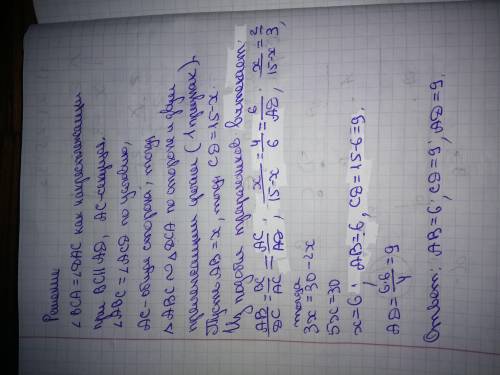 Решение
∠BCA = ∠DAC как накрестлежащии
при BC∥AD, AC-секущая.
∠ABC = ∠ACD по условию,
AC- общая сторона, тогда
△ABC ∾ △DCA по стороне и двум
прилежащим углам (1 признак).
Пусть AB = x, тогда CD = 15-x.
Из подобия треугольников вытекает:
AB/DC = BC/AC = AC/AD, x/15-x = 4/6 = 6/AD, x/15-x = 2/3,
тогда
3x = 30-2x
5x = 30
x = 6, AB = 6, CD = 15-6 = 9,
AD = 6·6/4 = 9
Ответ: AB = 6, CD = 9, AD = 9.